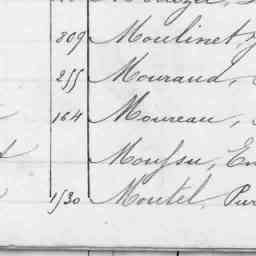 809 Moulinet,
255 Mouraud,
164 Moureau,
Moussu, Em
1530 Moutel, Pur